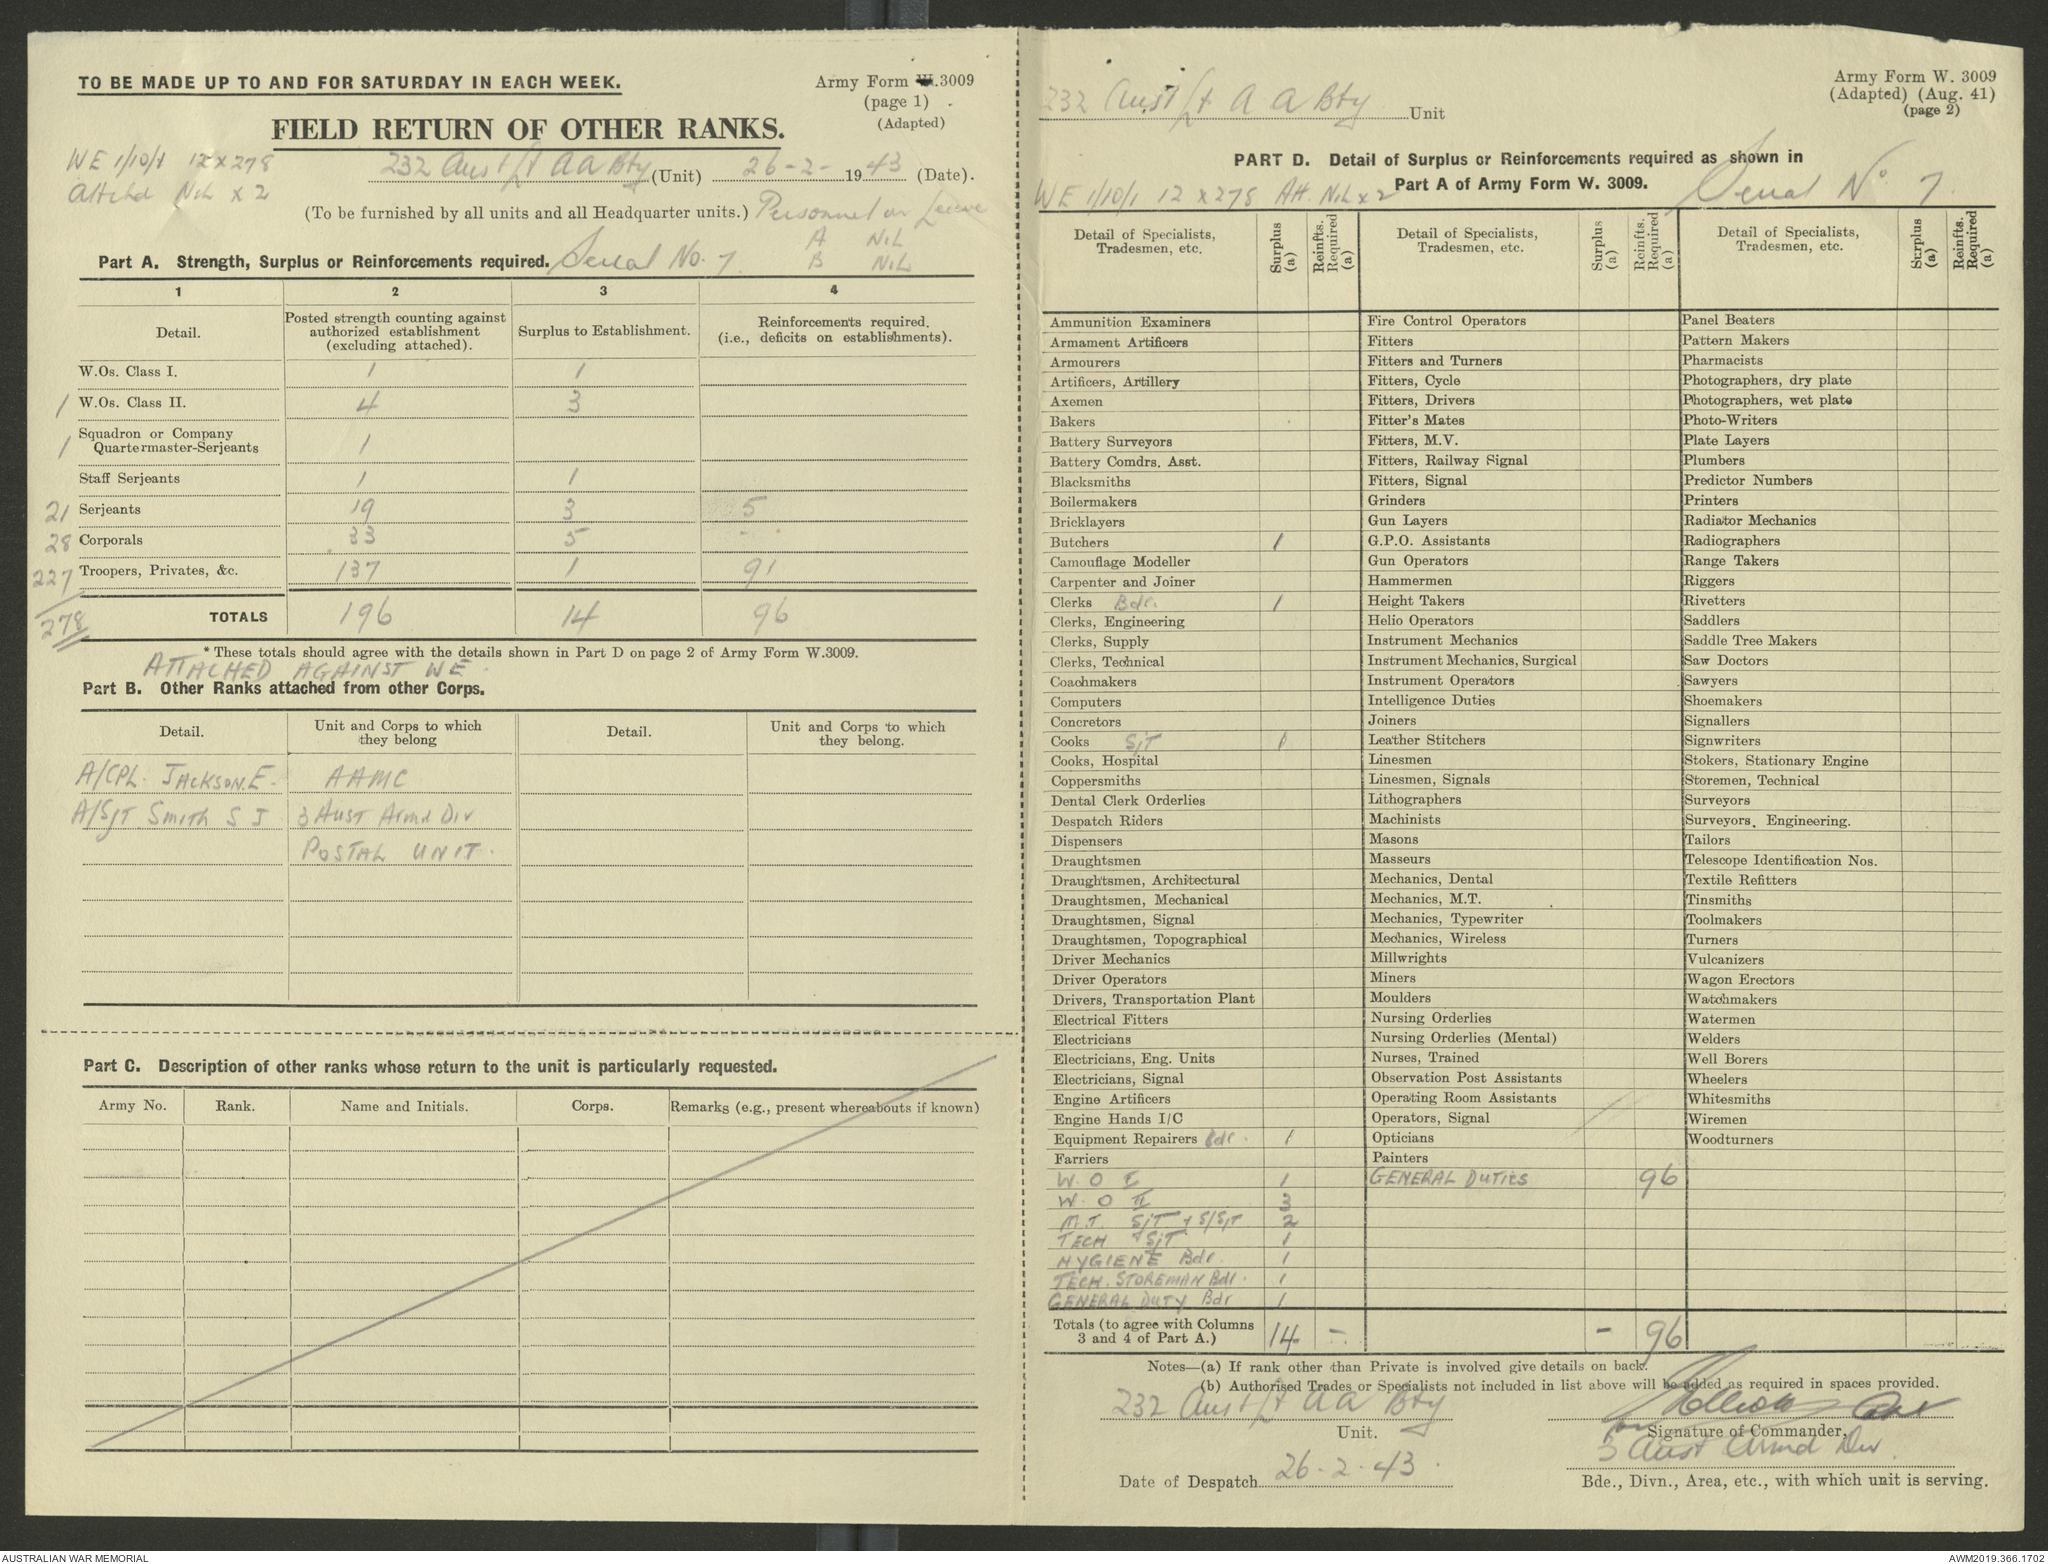 TO BE MADE UP TO AND FOR SATURDAY IN EACH WEEK.
Army Form W.3009
(page 1)
(Adapted)
FIELD RETURN OF OTHER RANKS.
WE 1/10/1 12 x 278
Attchd NIL x 2
232 Aust Lt AA Bty (Unit) 26-2- 1943 (Date).
(To be furnished by all units and all Headquarter units.) Personnel on Leave
A NIL
B NIL
Part A. Strength, Surplus or Reinforcements required. Serial No. 7
1 2 3 4
Detail. Posted strength counting against authorized establishment (excluding attached). Surplus to Establishment. Reinforcements required. (i.e., deficits on establishments).
W.Os. Class I. 1 1
1 W.Os. Class II. 4 3
1 Squadron or Company Quartermaster-Serjeants 1
Staff Serjeants 1 1
21 Serjeants 19 3 5
28 Corporals 33 5 -
227 Troopers, Privates, &c. 137 1 91
278 TOTALS 196 14 96
* These totals should agree with the details shown in Part D on page 2 of Army Form W.3009.
ATTACHED AGAINST WE
Part B. Other Ranks attached from other Corps.
Detail. Unit and Corps to which they belong Detail. Unit and Corps to which they belong.
A/CPL. JACKSON.E. AAMC
A/SjT Smith S J 3 Aust Armd Div
POSTAL UNIT.
Part C. Description of other ranks whose return to the unit is particularly requested.
Army No. Rank. Name and Initials. Corps. Remarks (e.g., present whereabouts if known)
232 Aust Lt A A Bty Unit
Army Form W. 3009
(Adapted) (Aug. 41)
(page 2)
PART D. Detail of Surplus or Reinforcements required as shown in
Part A of Army Form W. 3009.
WE 1/10/1 12 x 278 Att. NIL x 2
Serial No. 7.
Detail of Specialists, Tradesmen, etc. Surplus (a) Reinfts. Required (a) Detail of Specialists, Tradesmen, etc. Surplus (a) Reinfts. Required (a) Detail of Specialists, Tradesmen, etc. Surplus (a) Reinfts. Required (a)
Ammunition Examiners Fire Control Operators Panel Beaters
Armament Artificers Fitters Pattern Makers
Armourers Fitters and Turners Pharmacists
Artificers, Artillery Fitters, Cycle Photographers, dry plate
Axemen Fitters, Drivers Photographers, wet plate
Bakers Fitter's Mates Photo-Writers
Battery Surveyors Fitters, M.V. Plate Layers
Battery Comdrs. Asst. Fitters, Railway Signal Plumbers
Blacksmiths Fitters, Signal Predictor Numbers
Boilermakers Grinders Printers
Bricklayers Gun Layers Radiator Mechanics
Butchers 1 G.P.O. Assistants Radiographers
Camouflage Modeller Gun Operators Range Takers
Carpenter and Joiner Hammermen Riggers
Clerks Bdr. 1 Height Takers Rivetters
Clerks, Engineering Helio Operators Saddlers
Clerks, Supply Instrument Mechanics Saddle Tree Makers
Clerks, Technical Instrument Mechanics, Surgical Saw Doctors
Coachmakers Instrument Operators Sawyers
Computers Intelligence Duties Shoemakers
Concretors Joiners Signallers
Cooks SjT 1 Leather Stitchers Signwriters
Cooks, Hospital Linesmen Stokers, Stationary Engine
Coppersmiths Linesmen, Signals Storemen, Technical
Dental Clerk Orderlies Lithographers Surveyors
Despatch Riders Machinists Surveyors, Engineering.
Dispensers Masons Tailors
Draughtsmen Masseurs Telescope Identification Nos.
Draughtsmen, Architectural Mechanics, Dental Textile Refitters
Draughtsmen, Mechanical Mechanics, M.T. Tinsmiths
Draughtsmen, Signal Mechanics, Typewriter Toolmakers
Draughtsmen, Topographical Mechanics, Wireless Turners
Driver Mechanics Millwrights Vulcanizers
Driver Operators Miners Wagon Erectors
Drivers, Transportation Plant Moulders Watchmakers
Electrical Fitters Nursing Orderlies Watermen
Electricians Nursing Orderlies (Mental) Welders
Electricians, Eng. Units Nurses, Trained Well Borers
Electricians, Signal Observation Post Assistants Wheelers
Engine Artificers Operating Room Assistants Whitesmiths
Engine Hands I/C Operators, Signal Wiremen
Equipment Repairers Bdr. 1 Opticians Woodturners
Farriers Painters
W. O I 1 GENERAL DUTIES 96
W. O II 3
M.T. SjT + S/SjT 2
TECH SjT 1
HYGIENE Bdr. 1
TECH. STOREMAN Bdr. 1
GENERAL DUTY Bdr 1
Totals (to agree with Columns 3 and 4 of Part A.) 14 - - 96
Notes—(a) If rank other than Private is involved give details on back.
(b) Authorised Trades or Specialists not included in list above will be added as required in spaces provided.
232 Aust Lt AA Bty
Unit.
Signature of Commander,
3 Aust Armd Div
Date of Despatch 26-2-43.
Bde., Divn., Area, etc., with which unit is serving.
AUSTRALIAN WAR MEMORIAL
AWM2019.366.1702